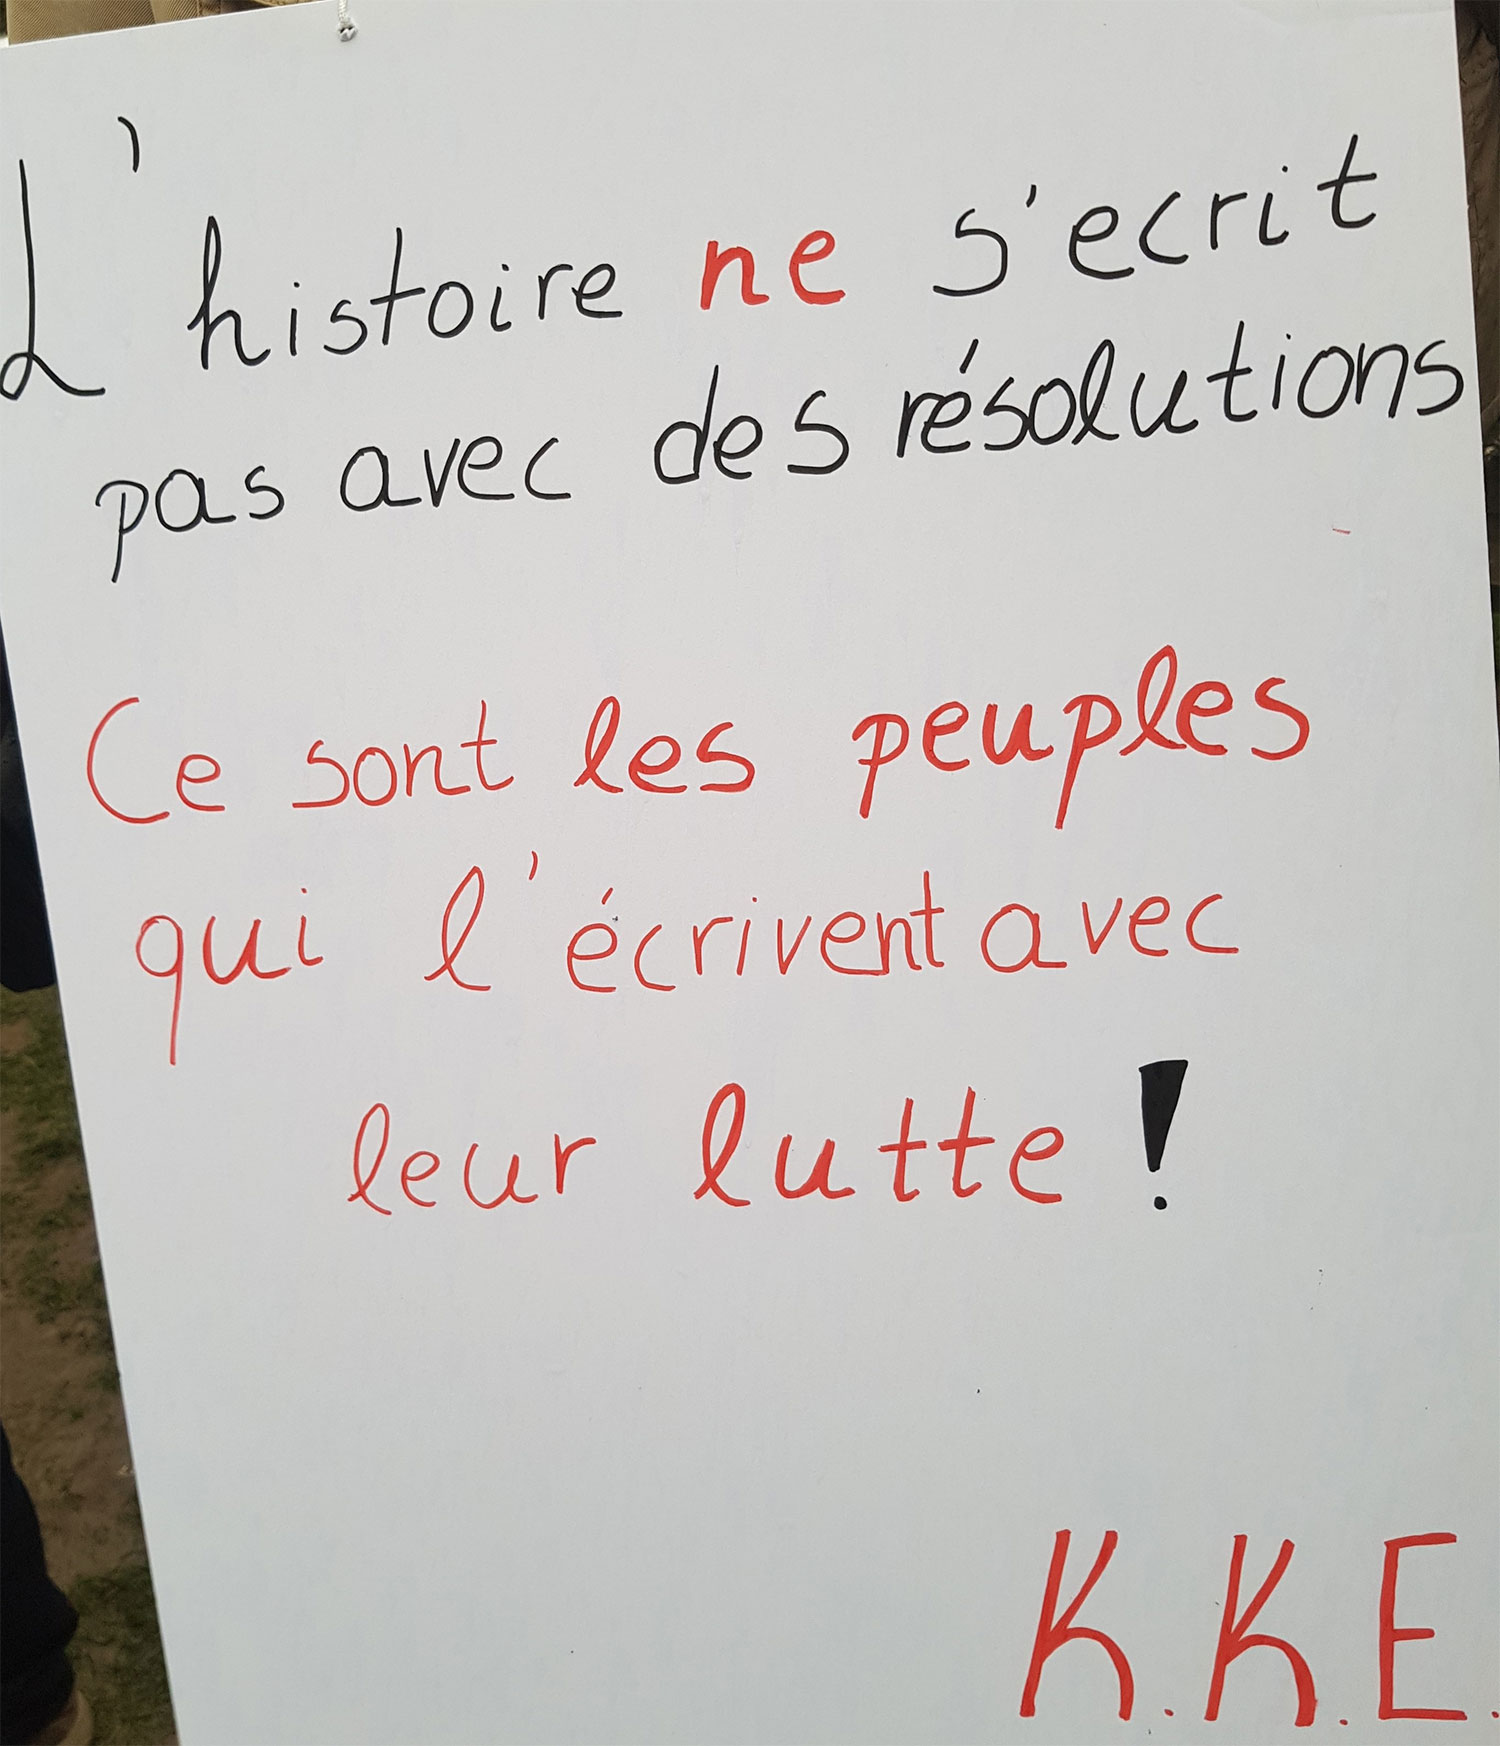 L'histoire ne s'ecrit
pas avec des résolutions
Ce sont les peuples
qui l'écrivent avec
leur lutte !
K.K.E.